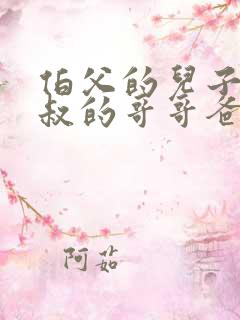 伯父的兒子
叔的哥哥爸
阿茹